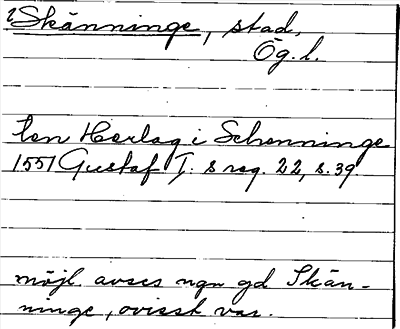 Skänninge, stad,
Ög. l.
ten Herlog i Schenninge
1551 Gustaf I:s reg. 22, s. 39.
möjl. avses ngn gd Skän-
ninge, ovisst var.